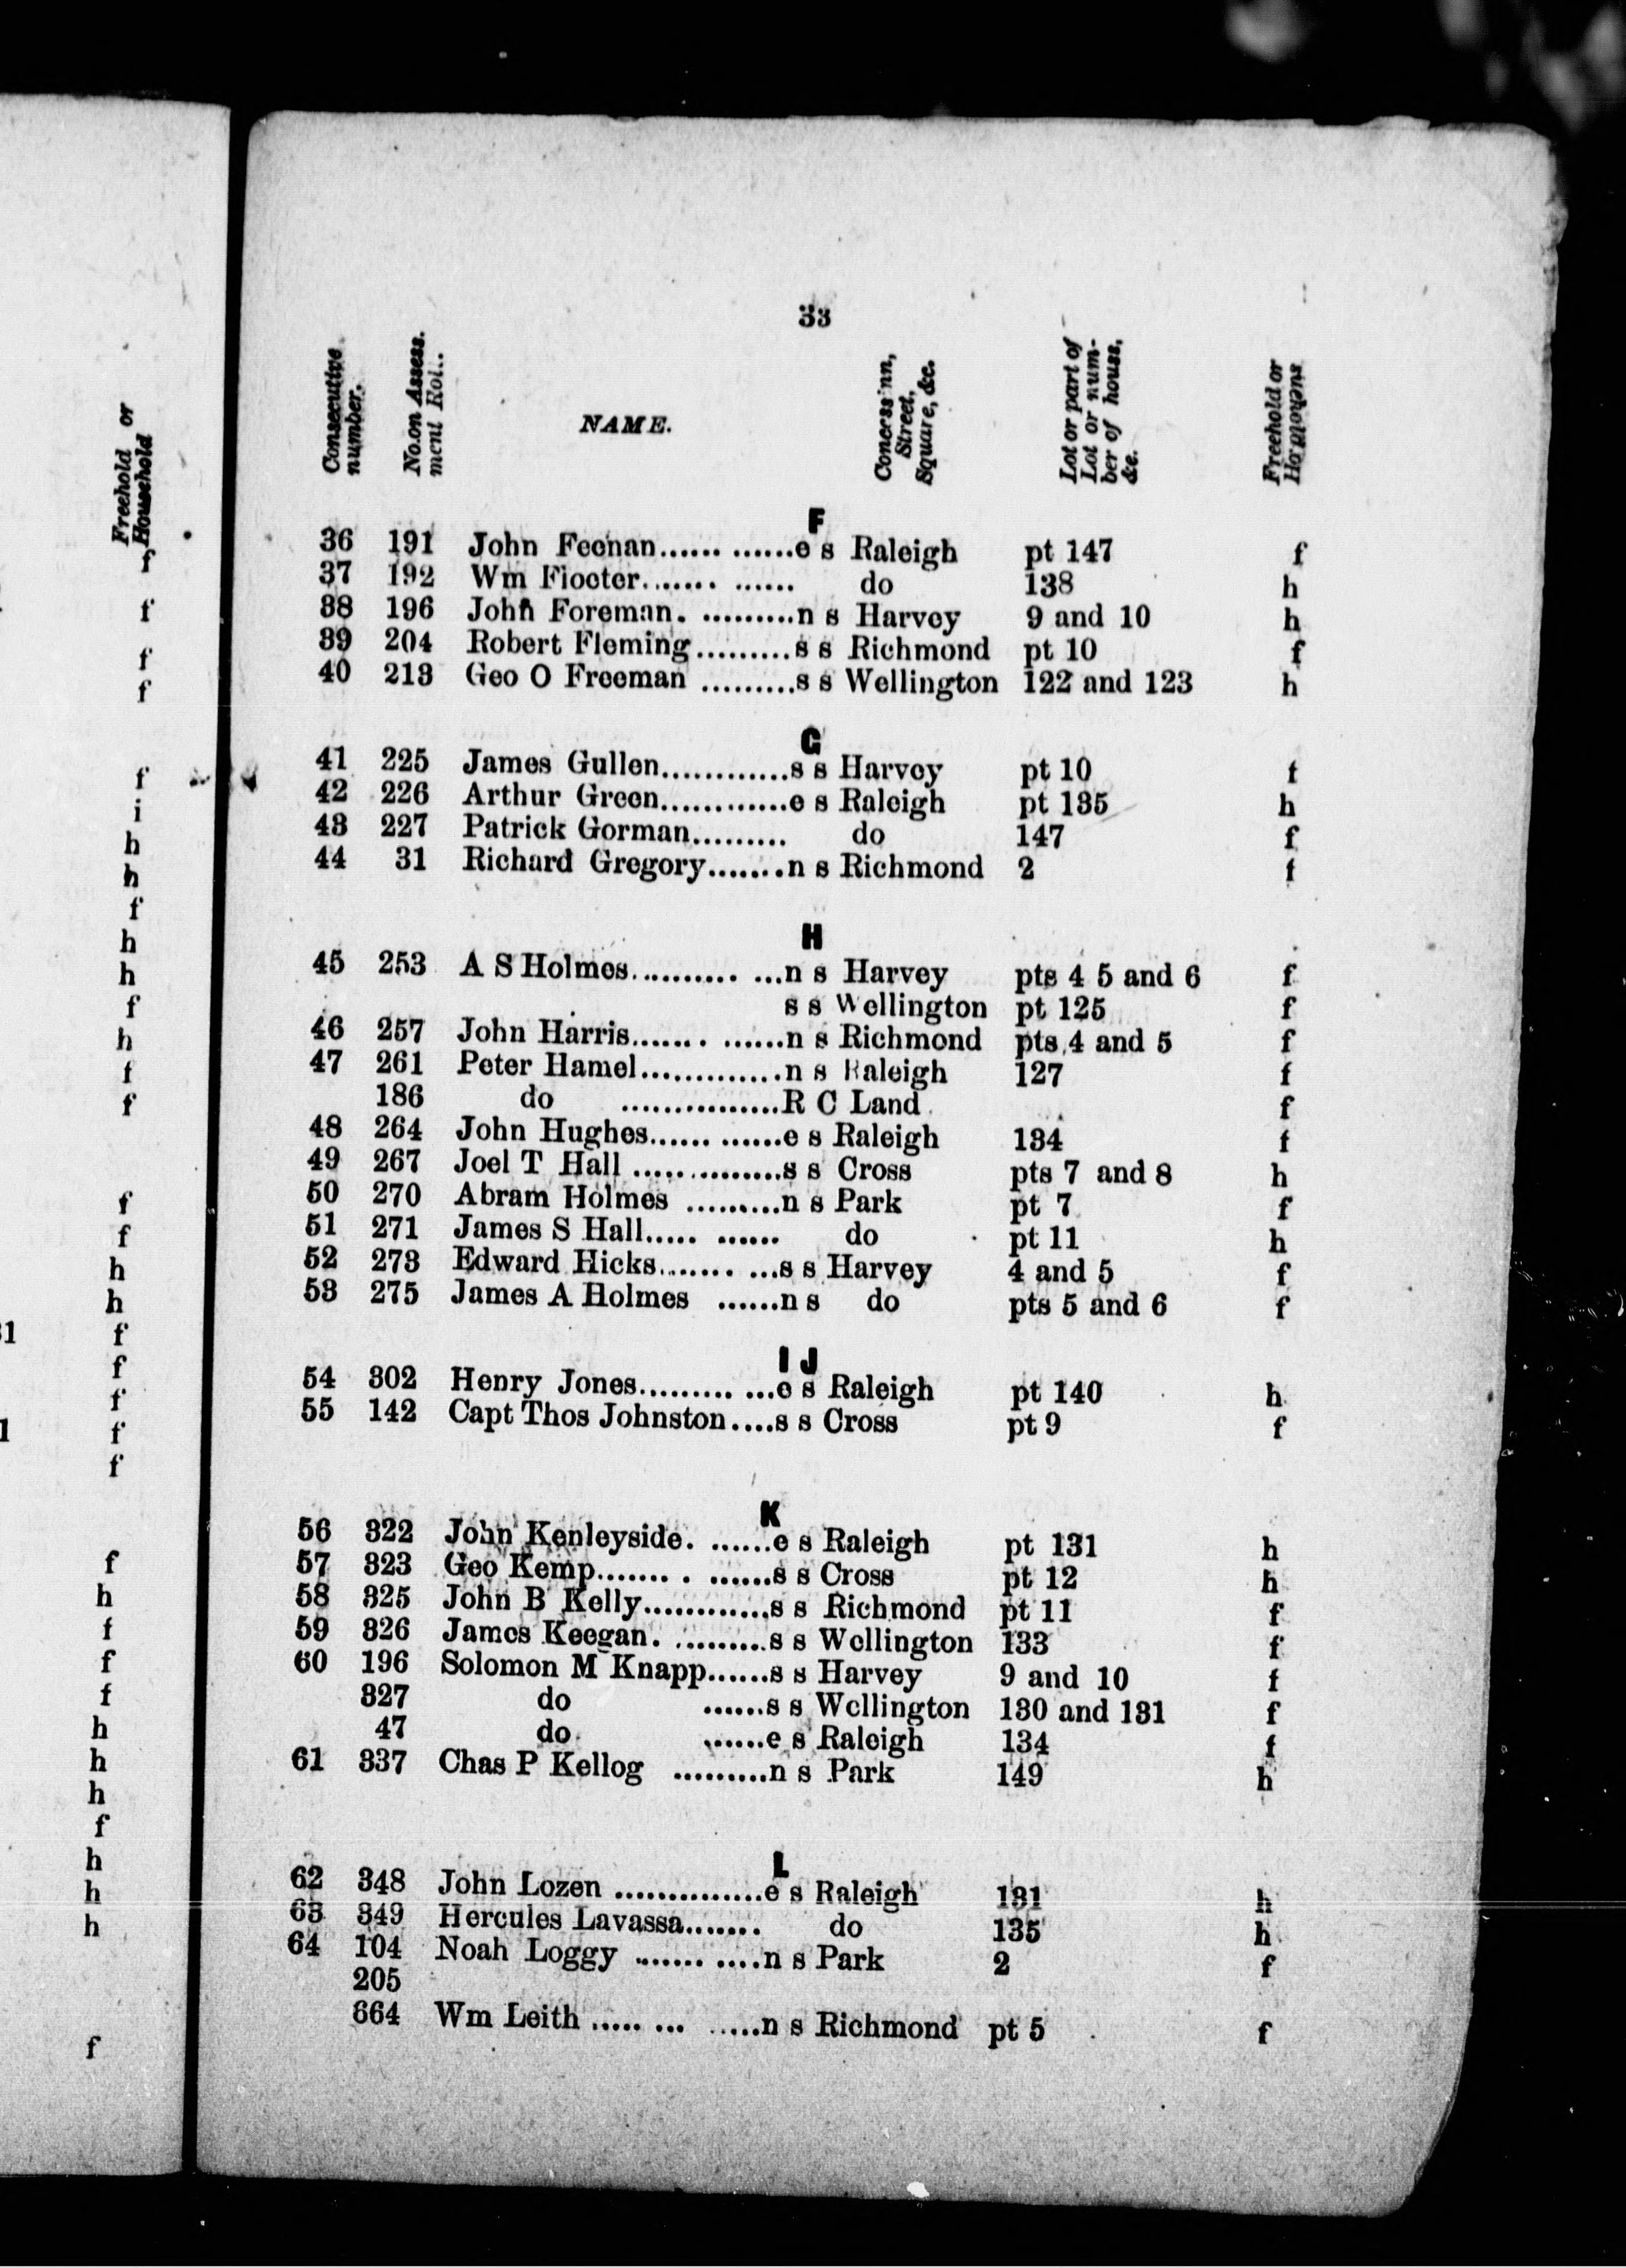 33
Consecutive number.
No. on Assess. ment Rol..
NAME.
Concess'nn, Street, Square, &c.
Lot or part of Lot or num- ber of house, &c.
Freehold or
Freehold or Household
F
36 191 John Feenan............e s Raleigh pt 147 f
37 192 Wm Fiooter............. do 138 h
38 196 John Foreman. .........n s Harvey 9 and 10 h
39 204 Robert Fleming.........s s Richmond pt 10 f
40 213 Geo O Freeman .........s s Wellington 122 and 123 h
G
41 225 James Gullen............s s Harvey pt 10 f
42 226 Arthur Green............e s Raleigh pt 135 h
43 227 Patrick Gorman......... do 147 f
44 31 Richard Gregory.......n s Richmond 2 f
H
45 253 A S Holmes.......... ...n s Harvey pts 4 5 and 6 f
s s Wellington pt 125 f
46 257 John Harris....... ......n s Richmond pts 4 and 5 f
47 261 Peter Hamel.............n s Raleigh 127 f
186 do ...............R C Land f
48 264 John Hughes...... ......e s Raleigh 134 f
49 267 Joel T Hall ..............s s Cross pts 7 and 8 h
50 270 Abram Holmes .........n s Park pt 7 f
51 271 James S Hall..... ...... do pt 11 h
52 273 Edward Hicks....... ...s s Harvey 4 and 5 f
53 275 James A Holmes ......n s do pts 5 and 6 f
I J
54 302 Henry Jones......... ...e s Raleigh pt 140 h
55 142 Capt Thos Johnston....s s Cross pt 9 f
K
56 322 John Kenleyside. ......e s Raleigh pt 131 h
57 323 Geo Kemp....... . ......s s Cross pt 12 h
58 325 John B Kelly............s s Richmond pt 11 f
59 326 James Keegan. .........s s Wellington 133 f
60 196 Solomon M Knapp......s s Harvey 9 and 10 f
327 do ......s s Wellington 130 and 131 f
47 do ......e s Raleigh 134 f
61 337 Chas P Kellog .........n s Park 149 h
L
62 348 John Lozen ..............e s Raleigh 131 h
63 349 Hercules Lavassa....... do 135 h
64 104 Noah Loggy ....... .....n s Park 2 f
205
664 Wm Leith ..... ... .....n s Richmond pt 5 f